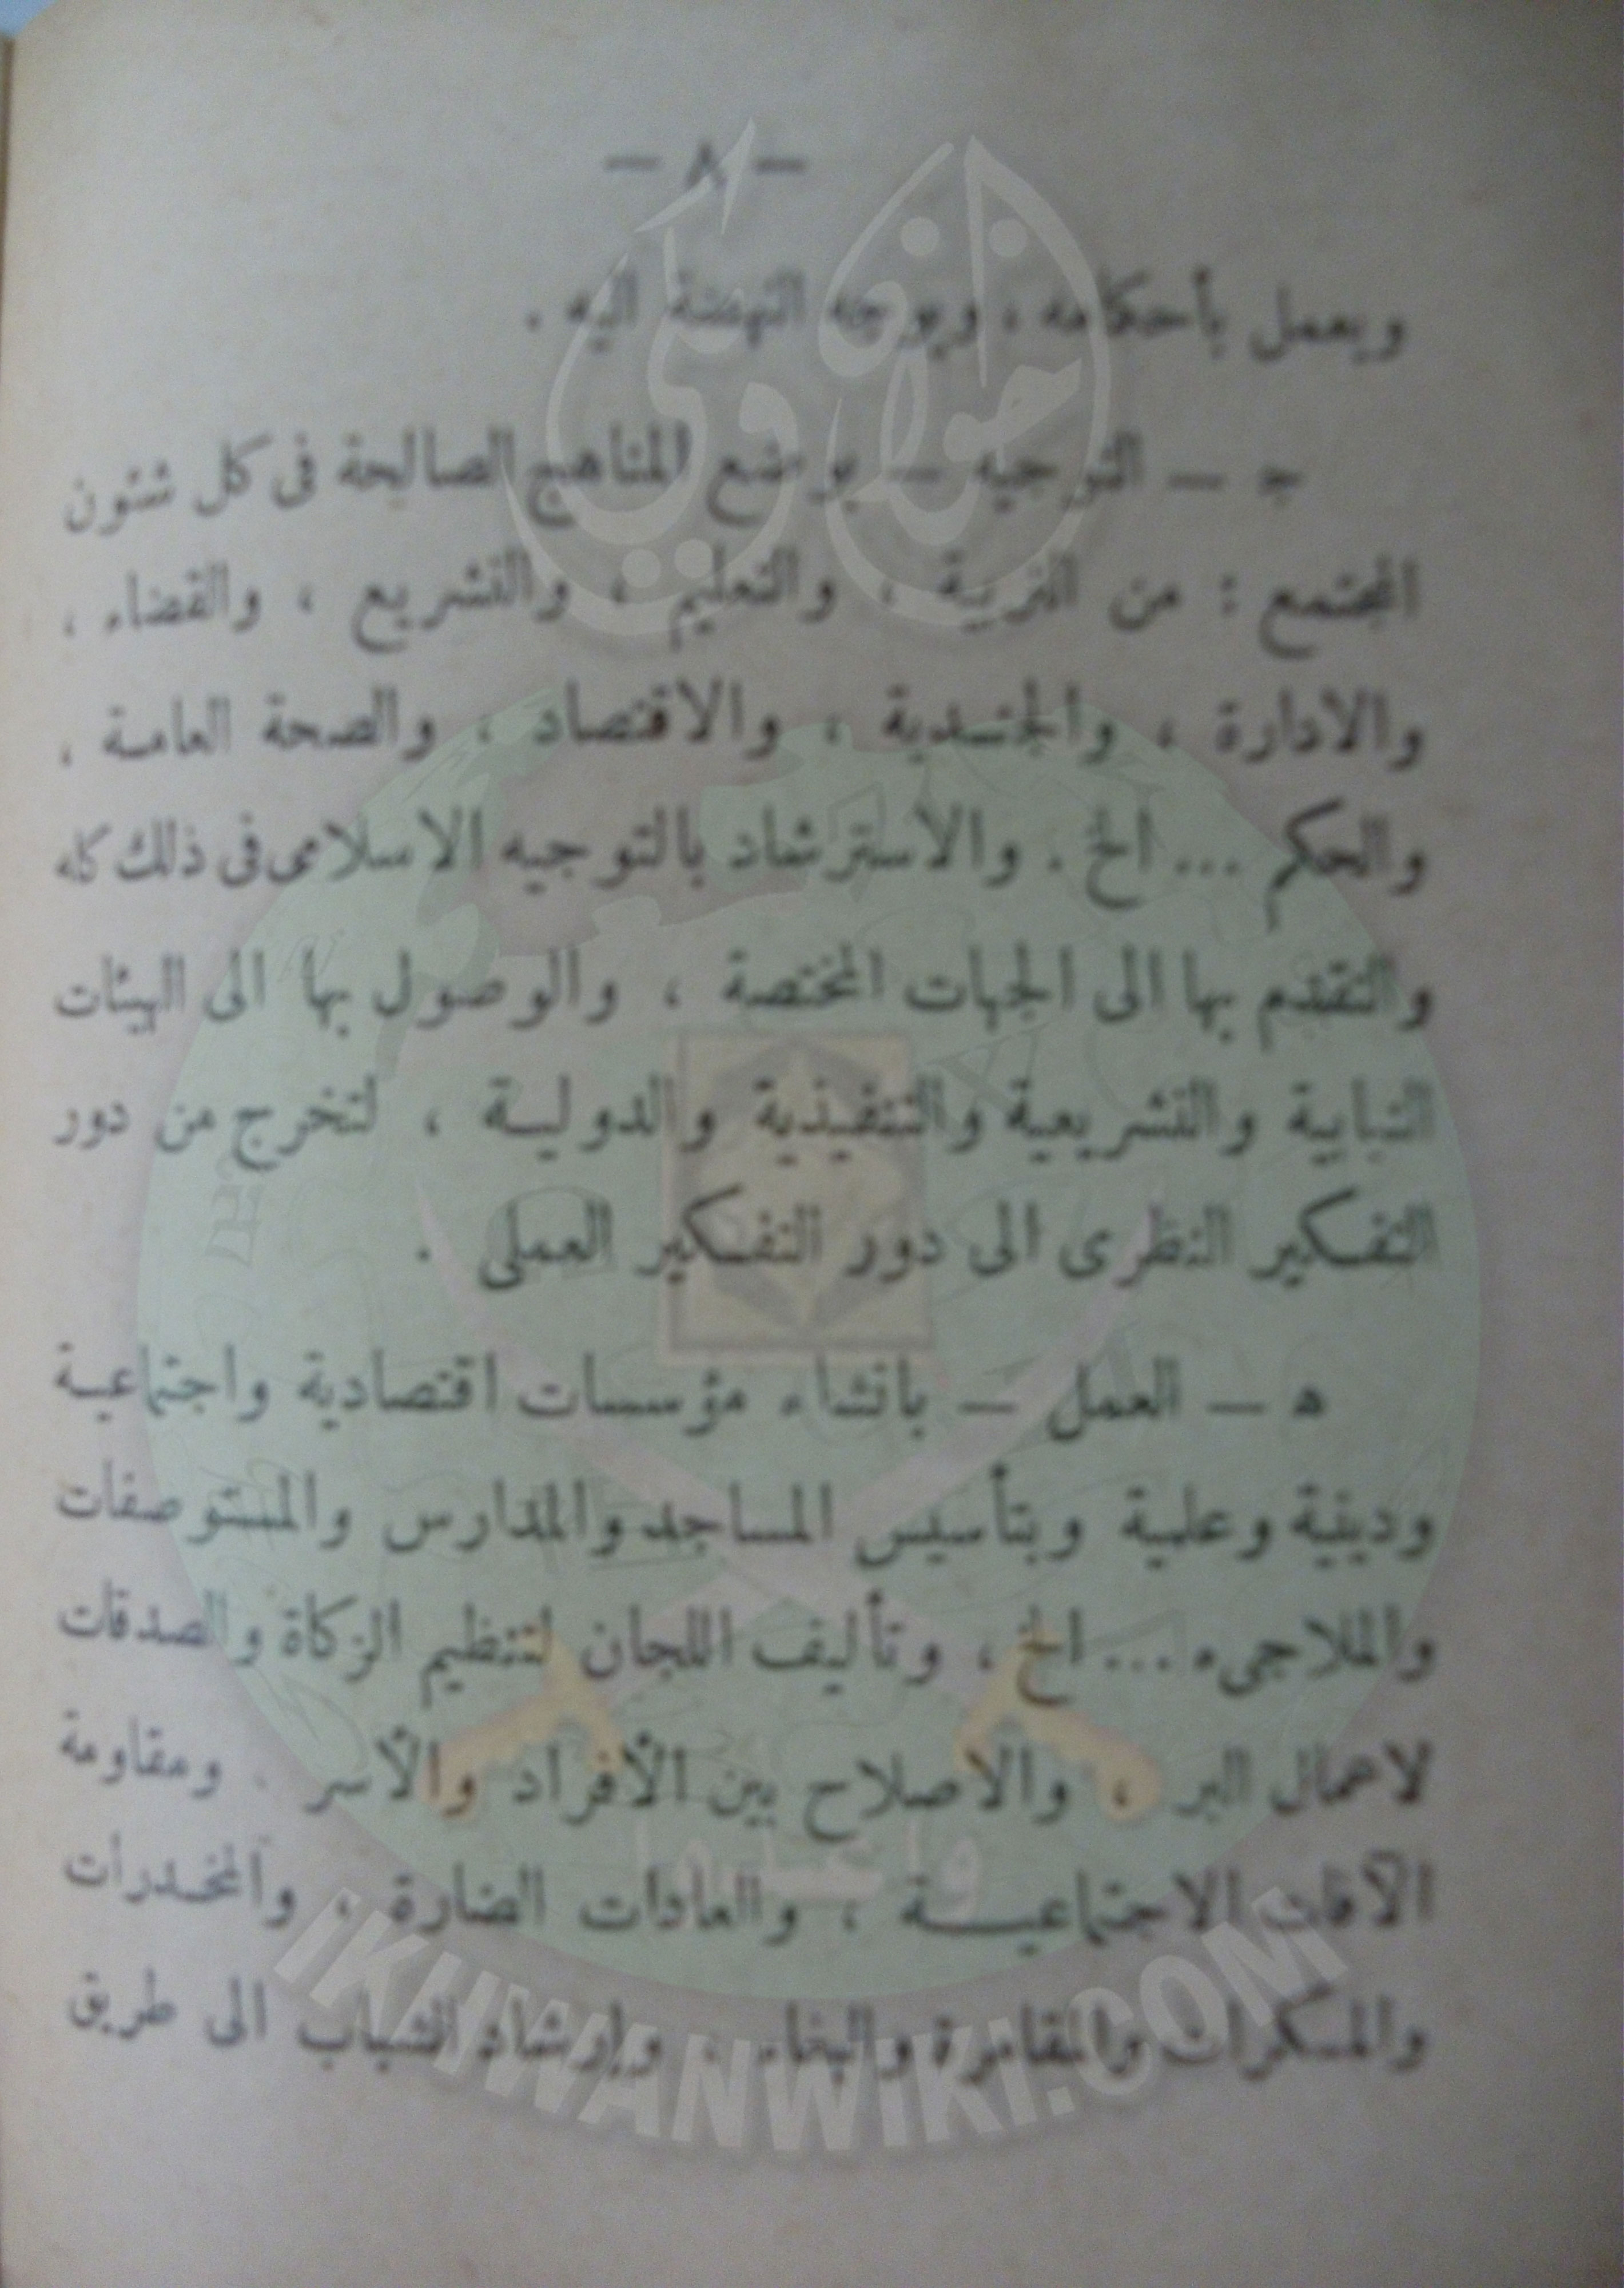 — ٨ —
ويعمل بأحكامه ، ويوجه النهضة اليه .
ج — التوجيه — بوضع المناهج الصالحة فى كل شئون
المجتمع : من التربية ، والتعليم ، والتشريع ، والقضاء ،
والادارة ، والجندية ، والاقتصاد ، والصحة العامة ،
والحكم ... الخ . والاسترشاد بالتوجيه الاسلامى فى ذلك كله
والتقدم بها الى الجهات المختصة ، والوصول بها الى الهيئات
النيابية والتشريعية والتنفيذية والدولية ، لتخرج من دور
التفكير النظرى الى دور التفكير العملى .
ه — العمل — بانشاء مؤسسات اقتصادية واجتماعية
ودينية وعلمية وبتأسيس المساجد والمدارس والمستوصفات
والملاجىء ... الخ ، وتأليف اللجان لتنظيم الزكاة والصدقات
لاعمال البر ، والاصلاح بين الأفراد والأسر . ومقاومة
الآفات الاجتماعية ، والعادات الضارة ، والمخدرات
والمسكرات والمقامرة والبغاء ، وإرشاد الشباب الى طريق
إخوان ويكي
وأعدوا
IKHWANWIKI.COM